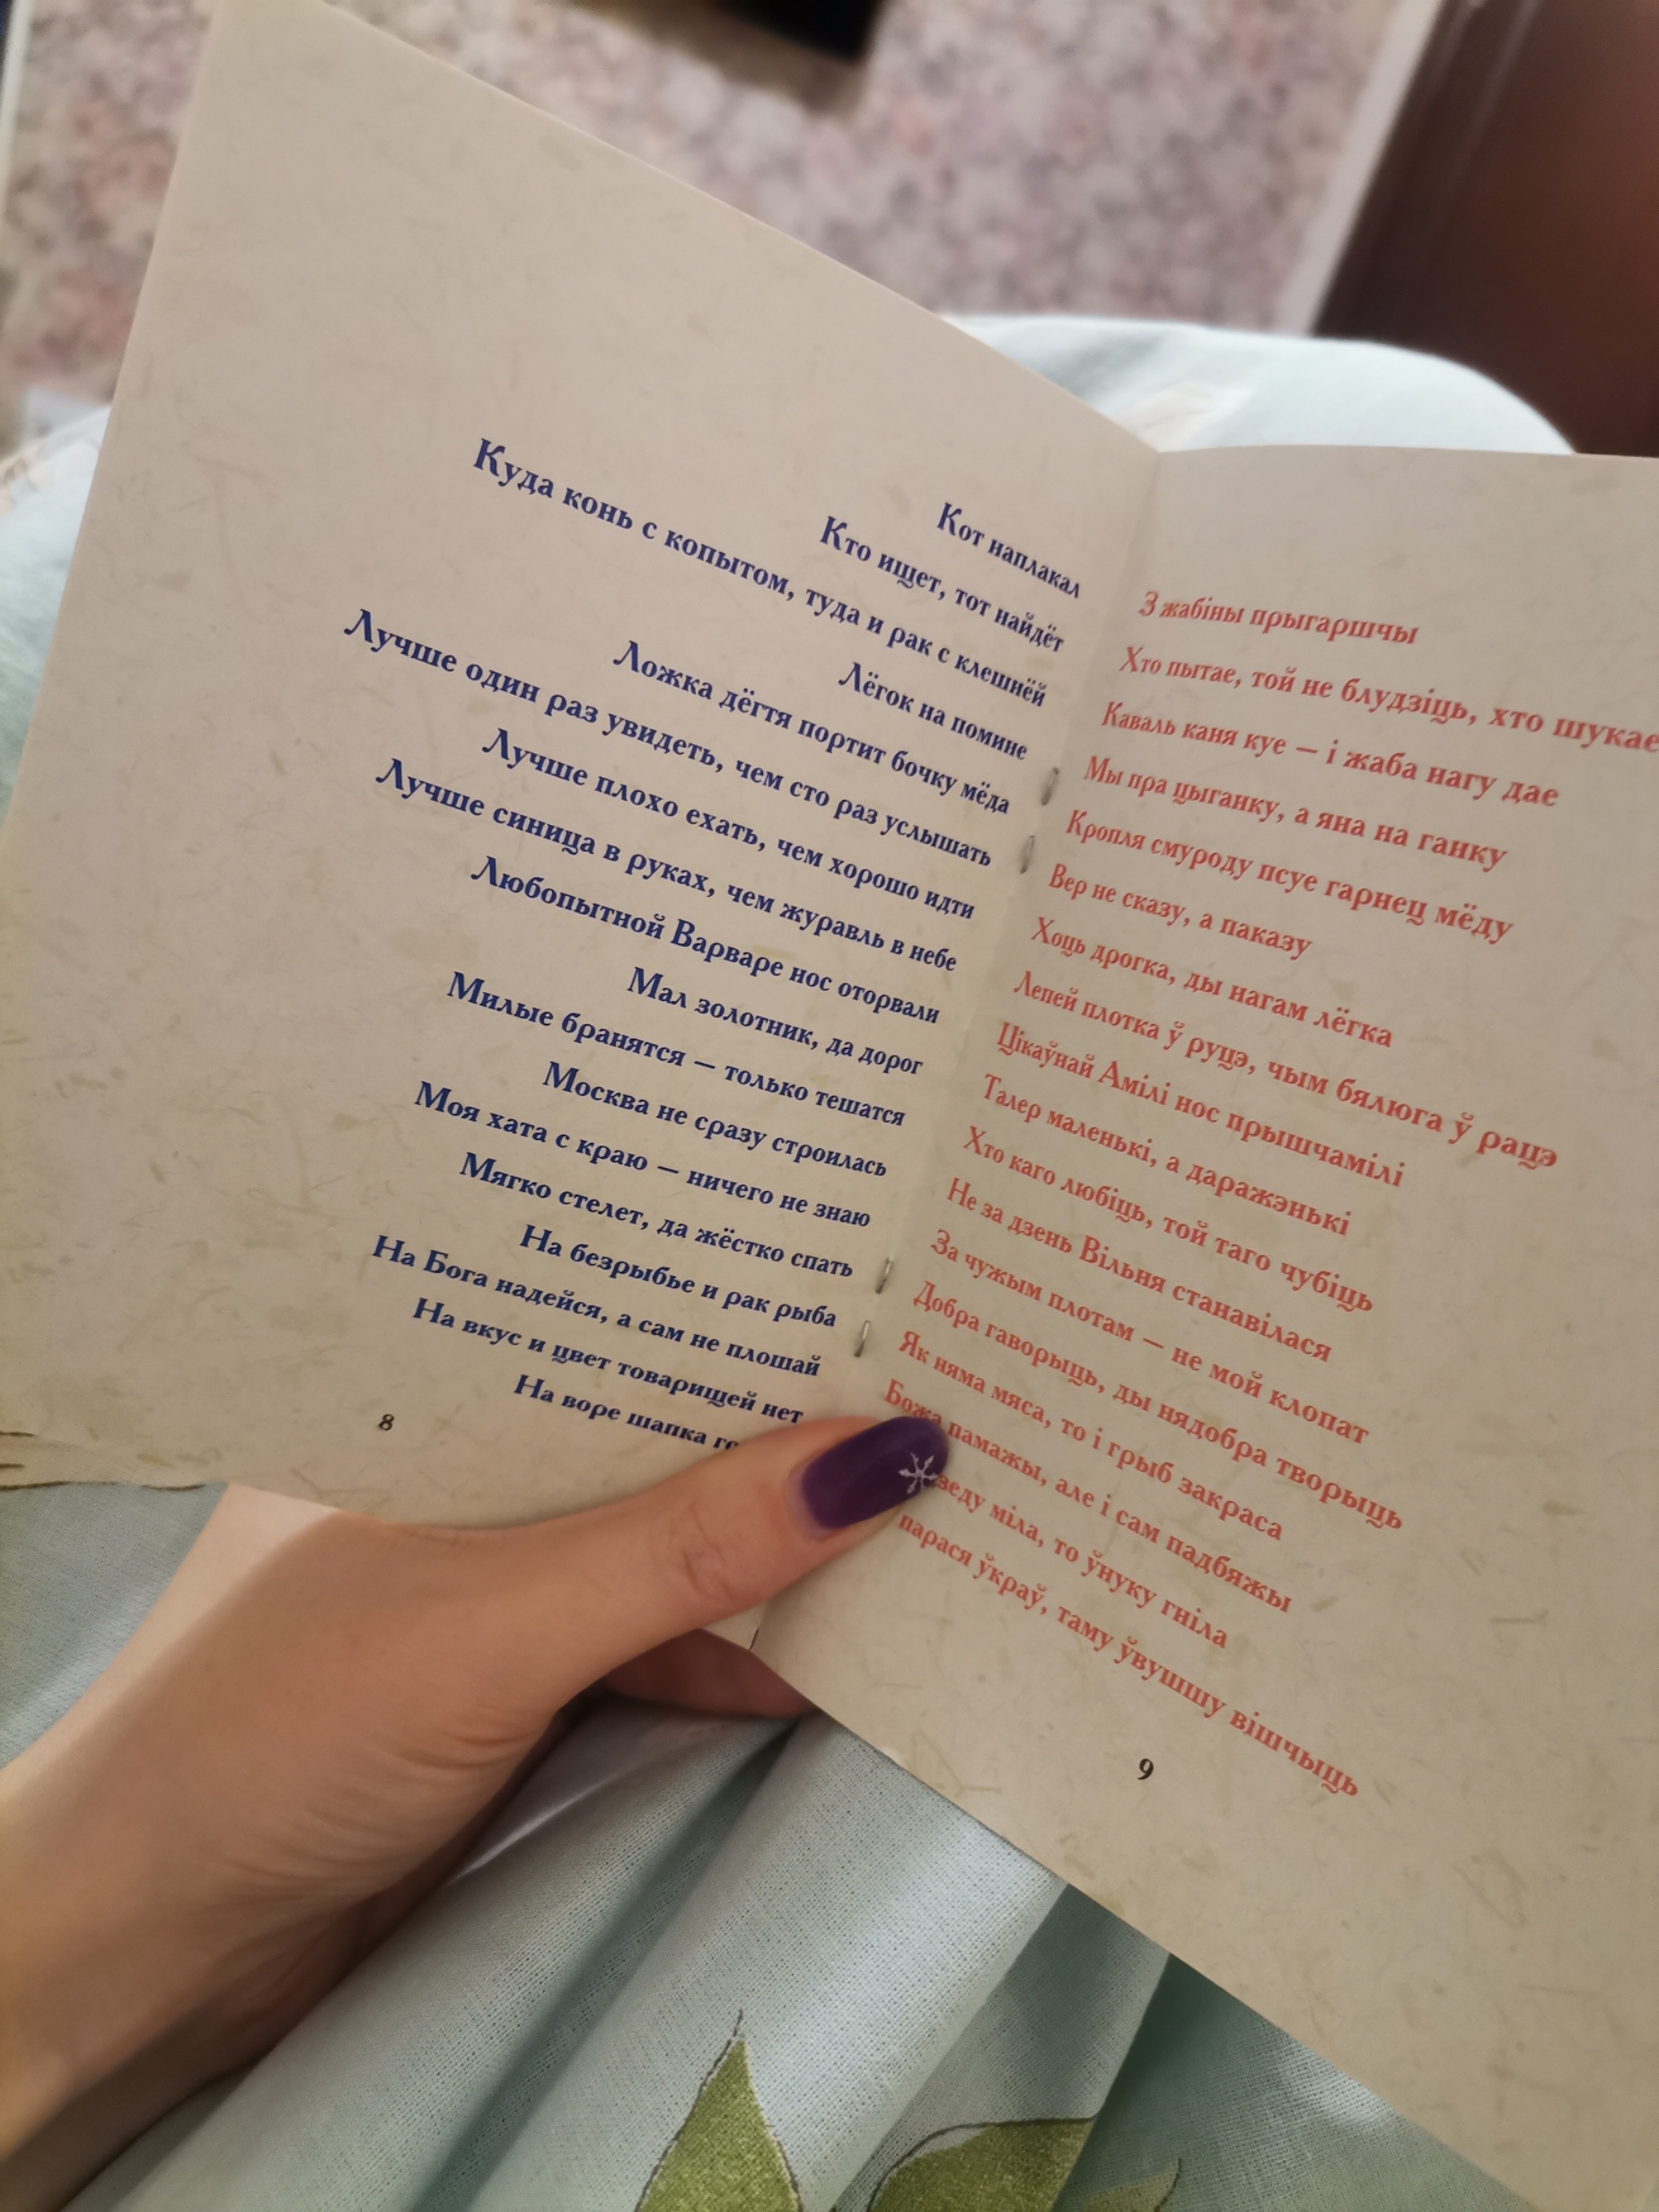 Кот наплакал
Кто ищет, тот найдёт
Куда конь с копытом, туда и рак с клешнёй
Лёгок на помине
Ложка дёгтя портит бочку мёда
Лучше один раз увидеть, чем сто раз услышать
Лучше плохо ехать, чем хорошо идти
Лучше синица в руках, чем журавль в небе
Любопытной Варваре нос оторвали
Мал золотник, да дорог
Милые бранятся — только тешатся
Москва не сразу строилась
Моя хата с краю — ничего не знаю
Мягко стелет, да жёстко спать
На безрыбье и рак рыба
На Бога надейся, а сам не плошай
На вкус и цвет товарищей нет
На воре шапка
8
З жабіны прыгаршчы
Хто пытае, той не блудзіць, хто шукае
Каваль каня куе — і жаба нагу дае
Мы пра цыганку, а яна на ганку
Кропля смуроду псуе гарнец мёду
Вер не сказу, а паказу
Хоць дрогка, ды нагам лёгка
Лепей плотка ў руцэ, чым бялюга ў рацэ
Цікаўнай Амілі нос прышчамілі
Талер маленькі, а даражэнькі
Хто каго любіць, той таго чубіць
Не за дзень Вільня станавілася
За чужым плотам — не мой клопат
Добра гаворыць, ды нядобра творыць
Як няма мяса, то і грыб закраса
Божа памажы, але і сам падбяжы
міла, то ўнуку гніла
парася ўкраў, таму ўвушшу вішчыць
9